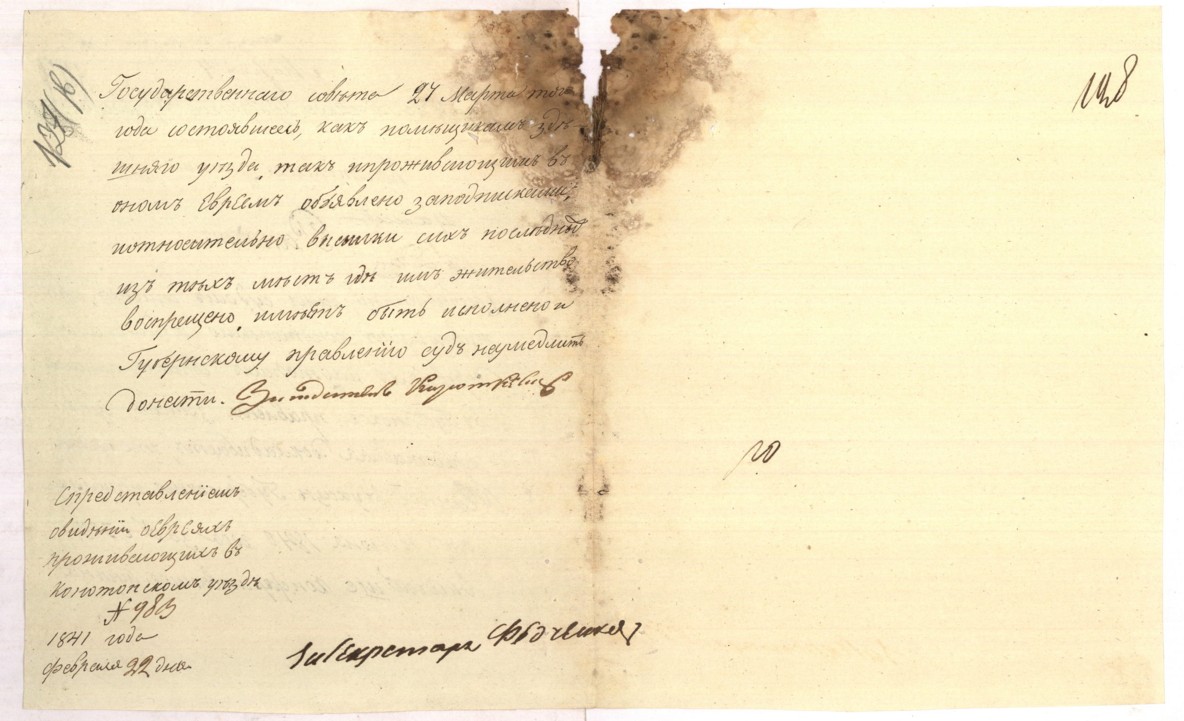 127 (б)
128
Государственнаго совѣта 27 Марта того
года состоявшемъ, какъ помѣщикамъ здѣ-
шняго уѣзда, такъ ипроживающимъ въ
ономъ Евреемъ объявлено заподписками,
иотносительно высылки сихъ последнихъ
изъ тѣхъ мѣстъ гдѣ имъ жительство
воспрещено, имѣетъ быть исполнено и
Губернскому правленію судъ неумедлитъ
донести. Засѣдатель
20
Спредставленіемъ
овидѣніи оЕвреяхъ
проживающихъ въ
Конотопскомъ уѣздѣ
N 983
1841 года
февраля 22 дня
Секретарь